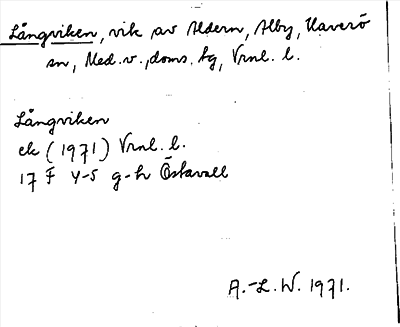 Långviken, vik av Aldern, Alby, Haverö
sn, Med. v. doms. tg, Vrnl. l.
Långviken
ek (1971) Vrnl. l.
17 F 4-5 g-h Östavall
A.-L. W. 1971.